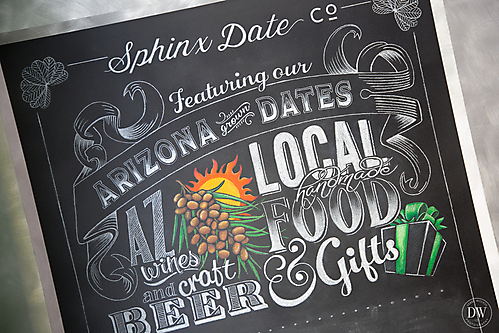 Sphinx Date Co
Featuring our
ARIZONA grown DATES
AZ
wines
and craft
BEER
&
LOCAL
handmade
FOOD
Gifts
DW